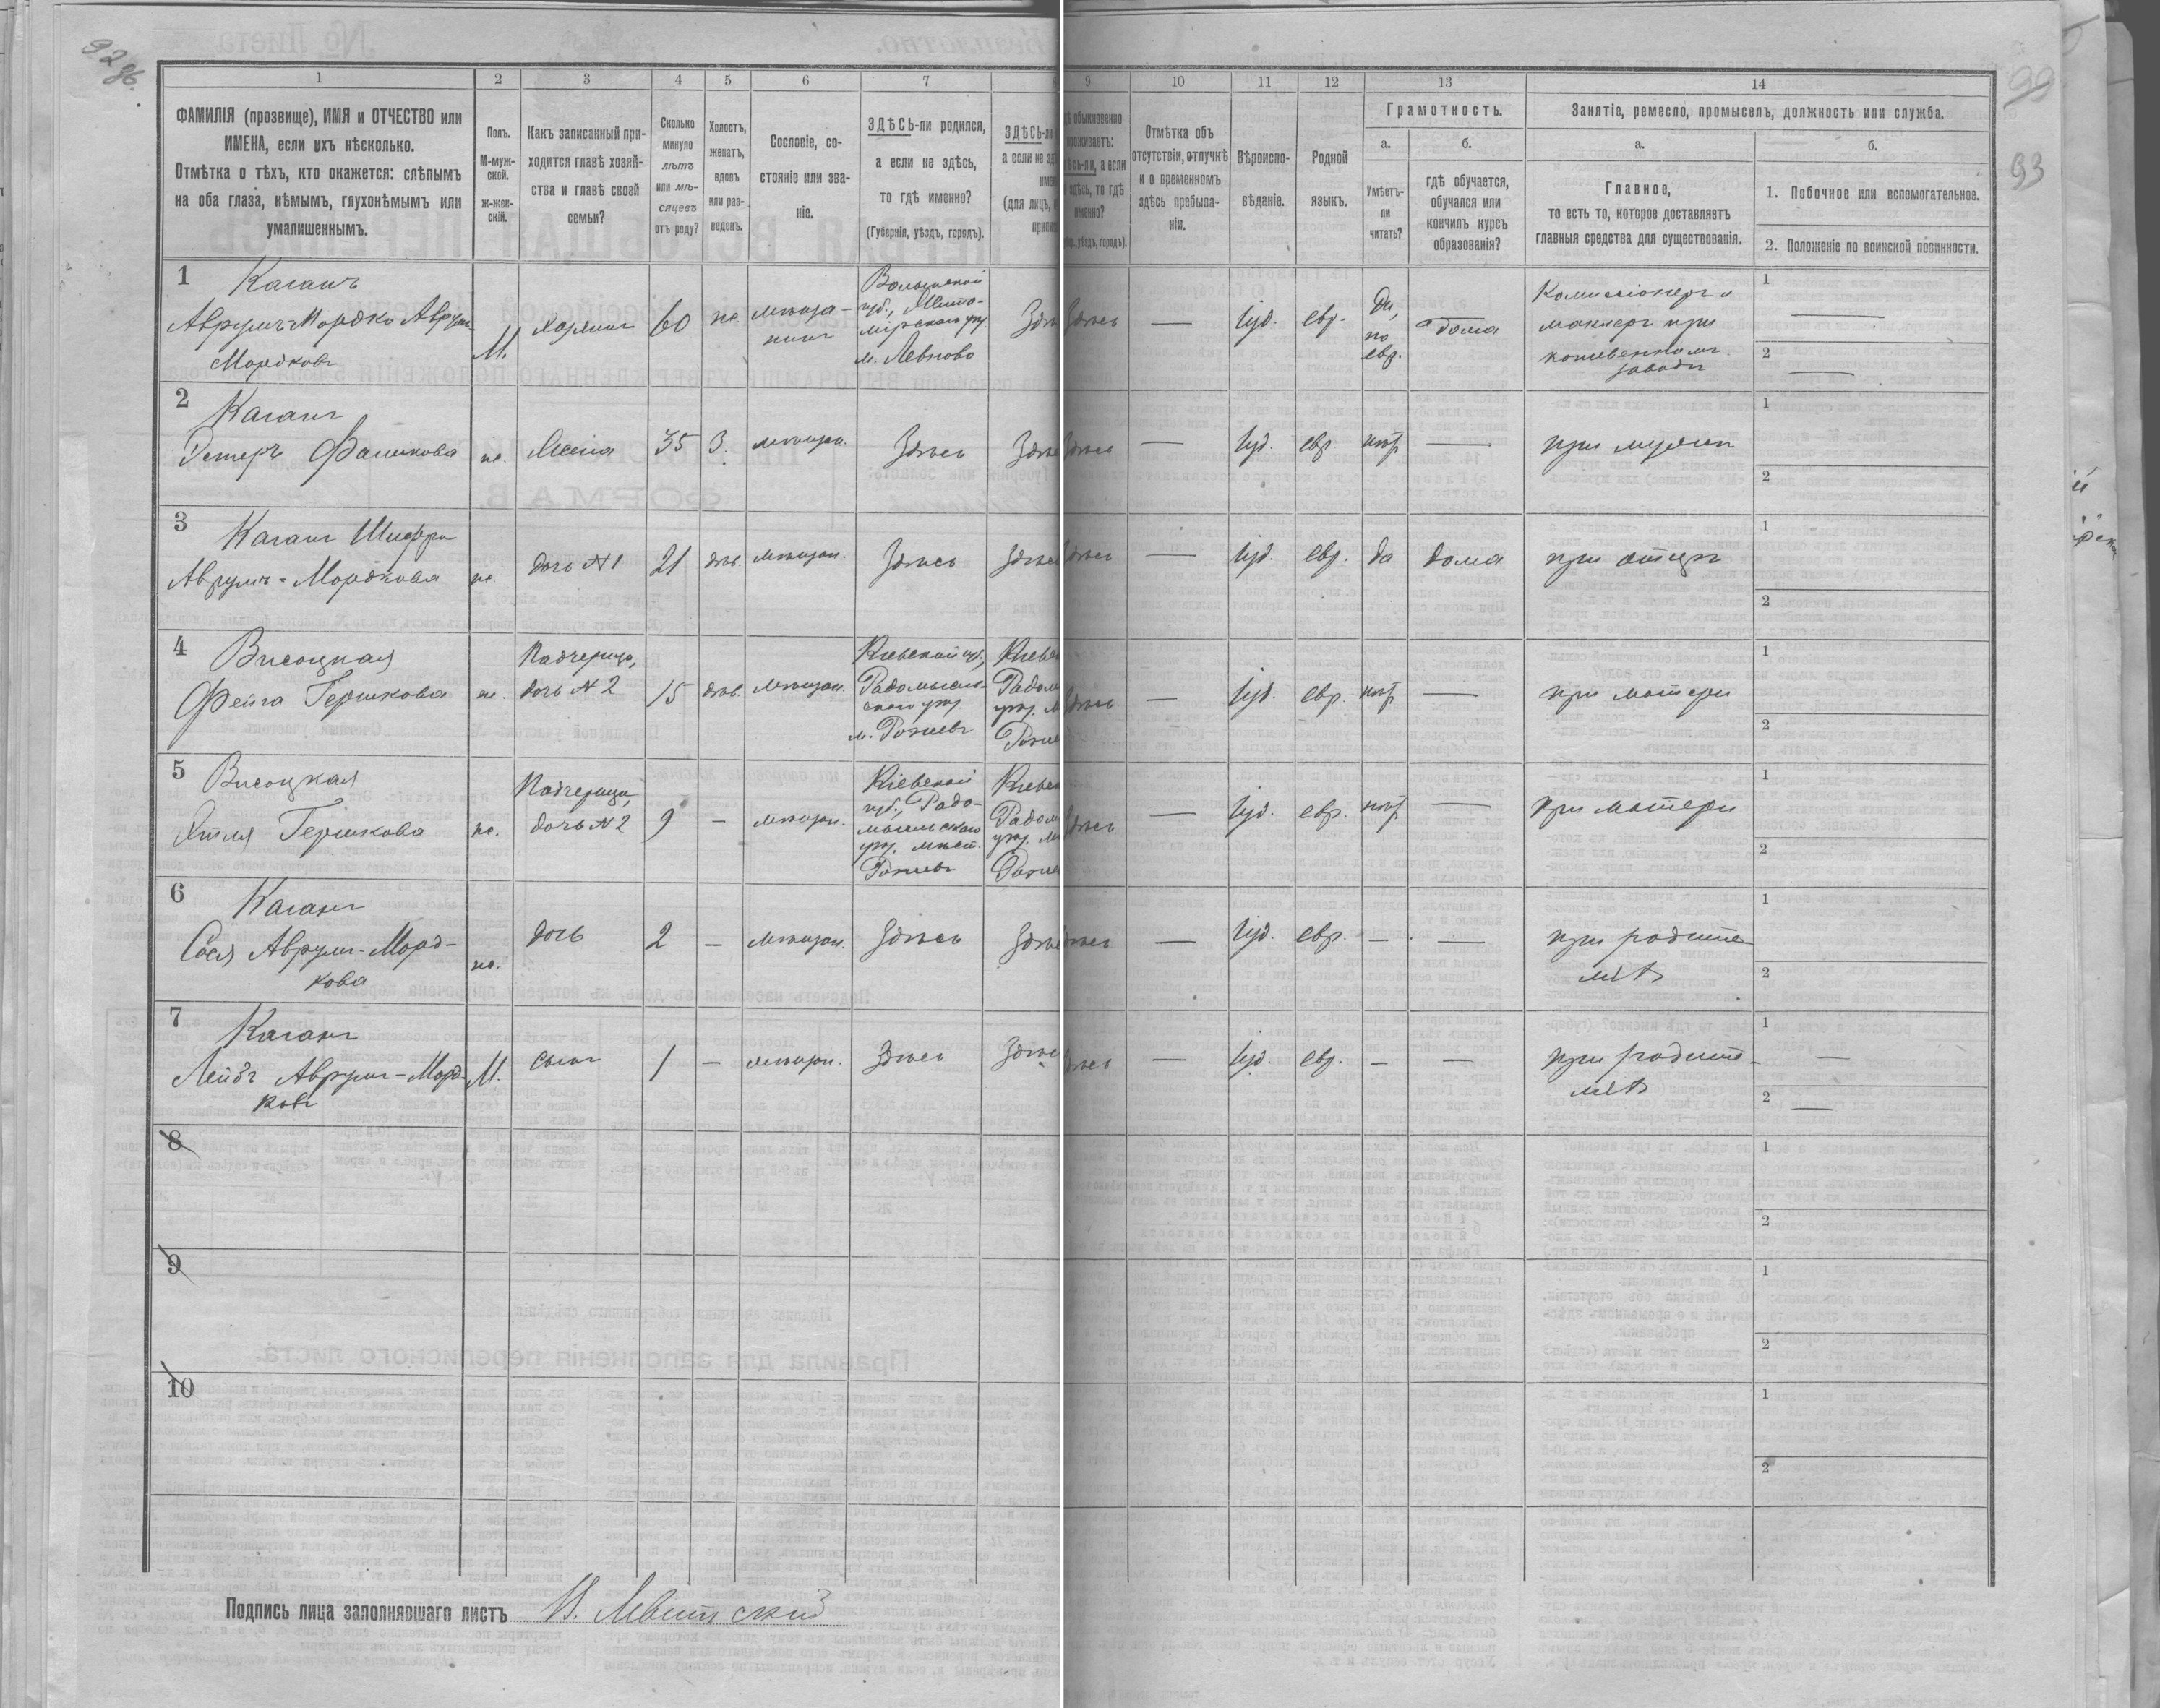 92 об.
99
93
1 2 3 4 5 6 7 9 10 11 12 13 14
ФАМИЛІЯ (прозвище), ИМЯ и ОТЧЕСТВО или
ИМЕНА, если ихъ нѣсколько.
Отмѣтка о тѣхъ, кто окажется: слѣпымъ
на оба глаза, нѣмымъ, глухонѣмымъ или
умалишеннымъ.
Полъ.
М-муж-
ской.
Ж-жен-
скій.
Какъ записанный при-
ходится главѣ хозяй-
ства и главѣ своей
семьи?
Сколько
минуло
лѣтъ
или мѣ-
сяцевъ
отъ роду?
Холостъ,
женатъ,
вдовъ
или раз-
веденъ.
Сословіе, со-
стояніе или зва-
ніе.
ЗДѢСЬ-ли родился,
а если не здѣсь,
то гдѣ именно?
(Губернія, уѣздъ, городъ).
ЗДѢСЬ-ли
а если не зд
(для лицъ,
припис
обыкновенно
проживаетъ:
здѣсь-ли, а если
не здѣсь, то гдѣ
именно?
уѣздъ, городъ).
Отмѣтка объ
отсутствіи, отлучкѣ
и о временномъ
здѣсь пребыва-
ніи.
Вѣроиспо-
вѣданіе.
Родной
языкъ.
Грамотность.
а.
Умѣетъ-
ли
читать?
б.
гдѣ обучается,
обучался или
кончилъ курсъ
образованія?
Занятіе, ремесло, промыселъ, должность или служба.
а.
Главное,
то есть то, которое доставляетъ
главныя средства для существованія.
б.
1. Побочное или вспомогательное.
2. Положеніе по воинской повинности.
1 Каганъ
Аврумъ-Мордко Аврум-
Мордковъ
М.
хозяинъ
60
же
мѣща-
нинъ
Волынской
губ., Жито-
мірскаго уѣз.
м. Левково
Здѣ
Здѣсь
—
Іуд.
евр.
Да,
по
евр.
дома
Комиссіонеръ и
маклеръ при
кожевенномъ
заводѣ
1 —
2 —
2 Каганъ
Эстеръ Фашкова
ж.
Жена
35
З.
мѣщан.
Здѣсь
Здѣс
Здѣсь
—
Іуд.
евр.
нѣт
—
при мужѣ
1
2
3 Каганъ Шифра
Аврумъ-Мордкова
ж.
дочь №1
21
дѣв.
мѣщан.
Здѣсь
Здѣсь
Здѣсь
—
Іуд.
евр.
да
дома
при отцѣ
1
2
4 Висоцкая
Фейга Гершкова
ж.
Падчерица,
дочь №2
15
дѣв.
мѣщан.
Кіевской губ.,
Радомысль-
скаго уѣз.
м. Рожевъ
Кіевс
Радом
уѣз. м
Роже
Здѣсь
—
Іуд.
евр.
нѣт
—
при матери
1
2
5 Висоцкая
Этля Гершкова
ж.
Падчерица,
дочь №2
9
—
мѣщан.
Кіевской
губ., Радо-
мысльскаго
уѣз. мѣст.
Рожевъ
Кіевс
Радом
уѣз. м
Роже
Здѣсь
—
Іуд.
евр.
нѣт
—
при матери
1
2
6 Каганъ
Сося Аврум-Морд-
кова
ж.
дочь
2
—
мѣщан.
Здѣсь
Здѣсь
Здѣсь
—
Іуд.
евр.
—
—
при родите-
ляхъ
1
2
7 Каганъ
Лейбъ Аврум-Морд-
ковъ
М.
сынъ
1
—
мѣщан.
Здѣсь
Здѣсь
Здѣсь
—
Іуд.
евр.
—
—
при родите-
ляхъ
1 —
2 —
8
1
2
9
1
2
10
1
2
Подпись лица заполнявшаго листъ